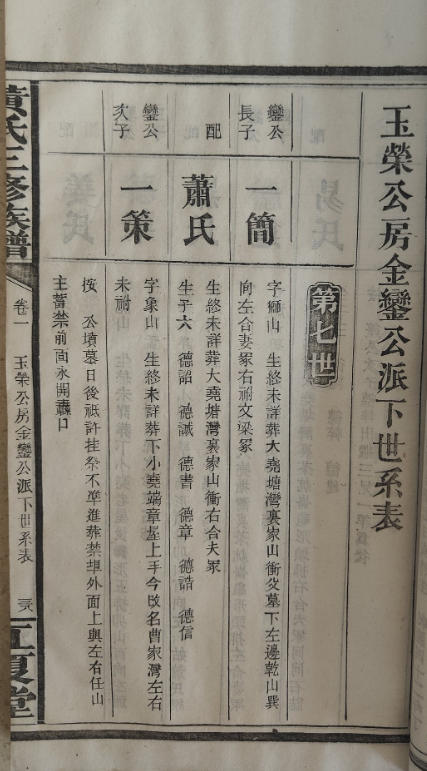 玉榮公房金鑾公派下世系表
第七世
鑾公長子
一簡
字獅山 生終未詳葬大堯塘灣裏家山衝父墓下左邊乾山巽
向左合妻冢右祔文梁冢
配
蕭氏
生終未詳葬大堯塘灣裏家山衝右合夫冢
生子六 德詔 德誠 德書 德章 德誥 德信
鑾公次子
一策
字象山 生終未詳葬下小堯端章屋上手今改名曹家灣左右
未祔
按 公墳墓日後祗許挂祭不準進葬禁塋外面上與左右任山
主蓄禁前面永開
黃氏三修族譜
卷一
玉榮公房金鑾公派下世系表
江夏堂